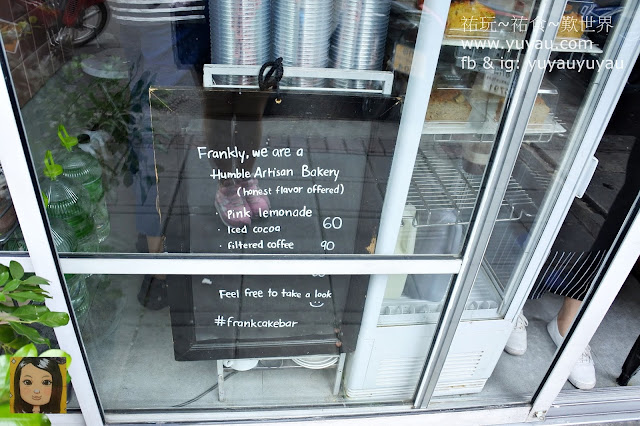 祐玩~祐食~歎世界
www.yuyau.com
fb & ig: yuyauyuyau
Frankly, we are a
Humble Artisan Bakery
(honest flavor offered)
· Pink lemonade
· Iced cocoa 60
· filtered coffee 90
Feel free to take a look
#frankcakebar